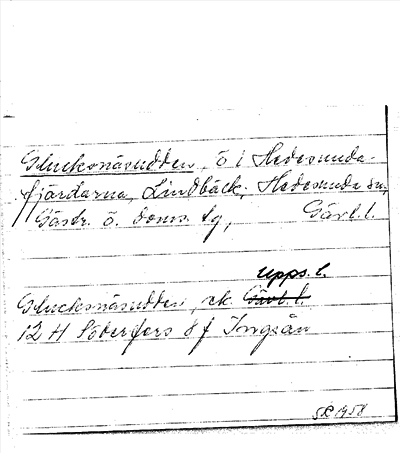 Glucksnäsudden, ö i Hedesunda-
fjärdarna, Lindbäck, Hedesunda sn,
Gästr. ö. doms. tg, Gävl. l.
Upps. l.
Glucksnäsudden, ek. Gävl. l.
12 H Söderfors 8 f Ingsån
SR 1958